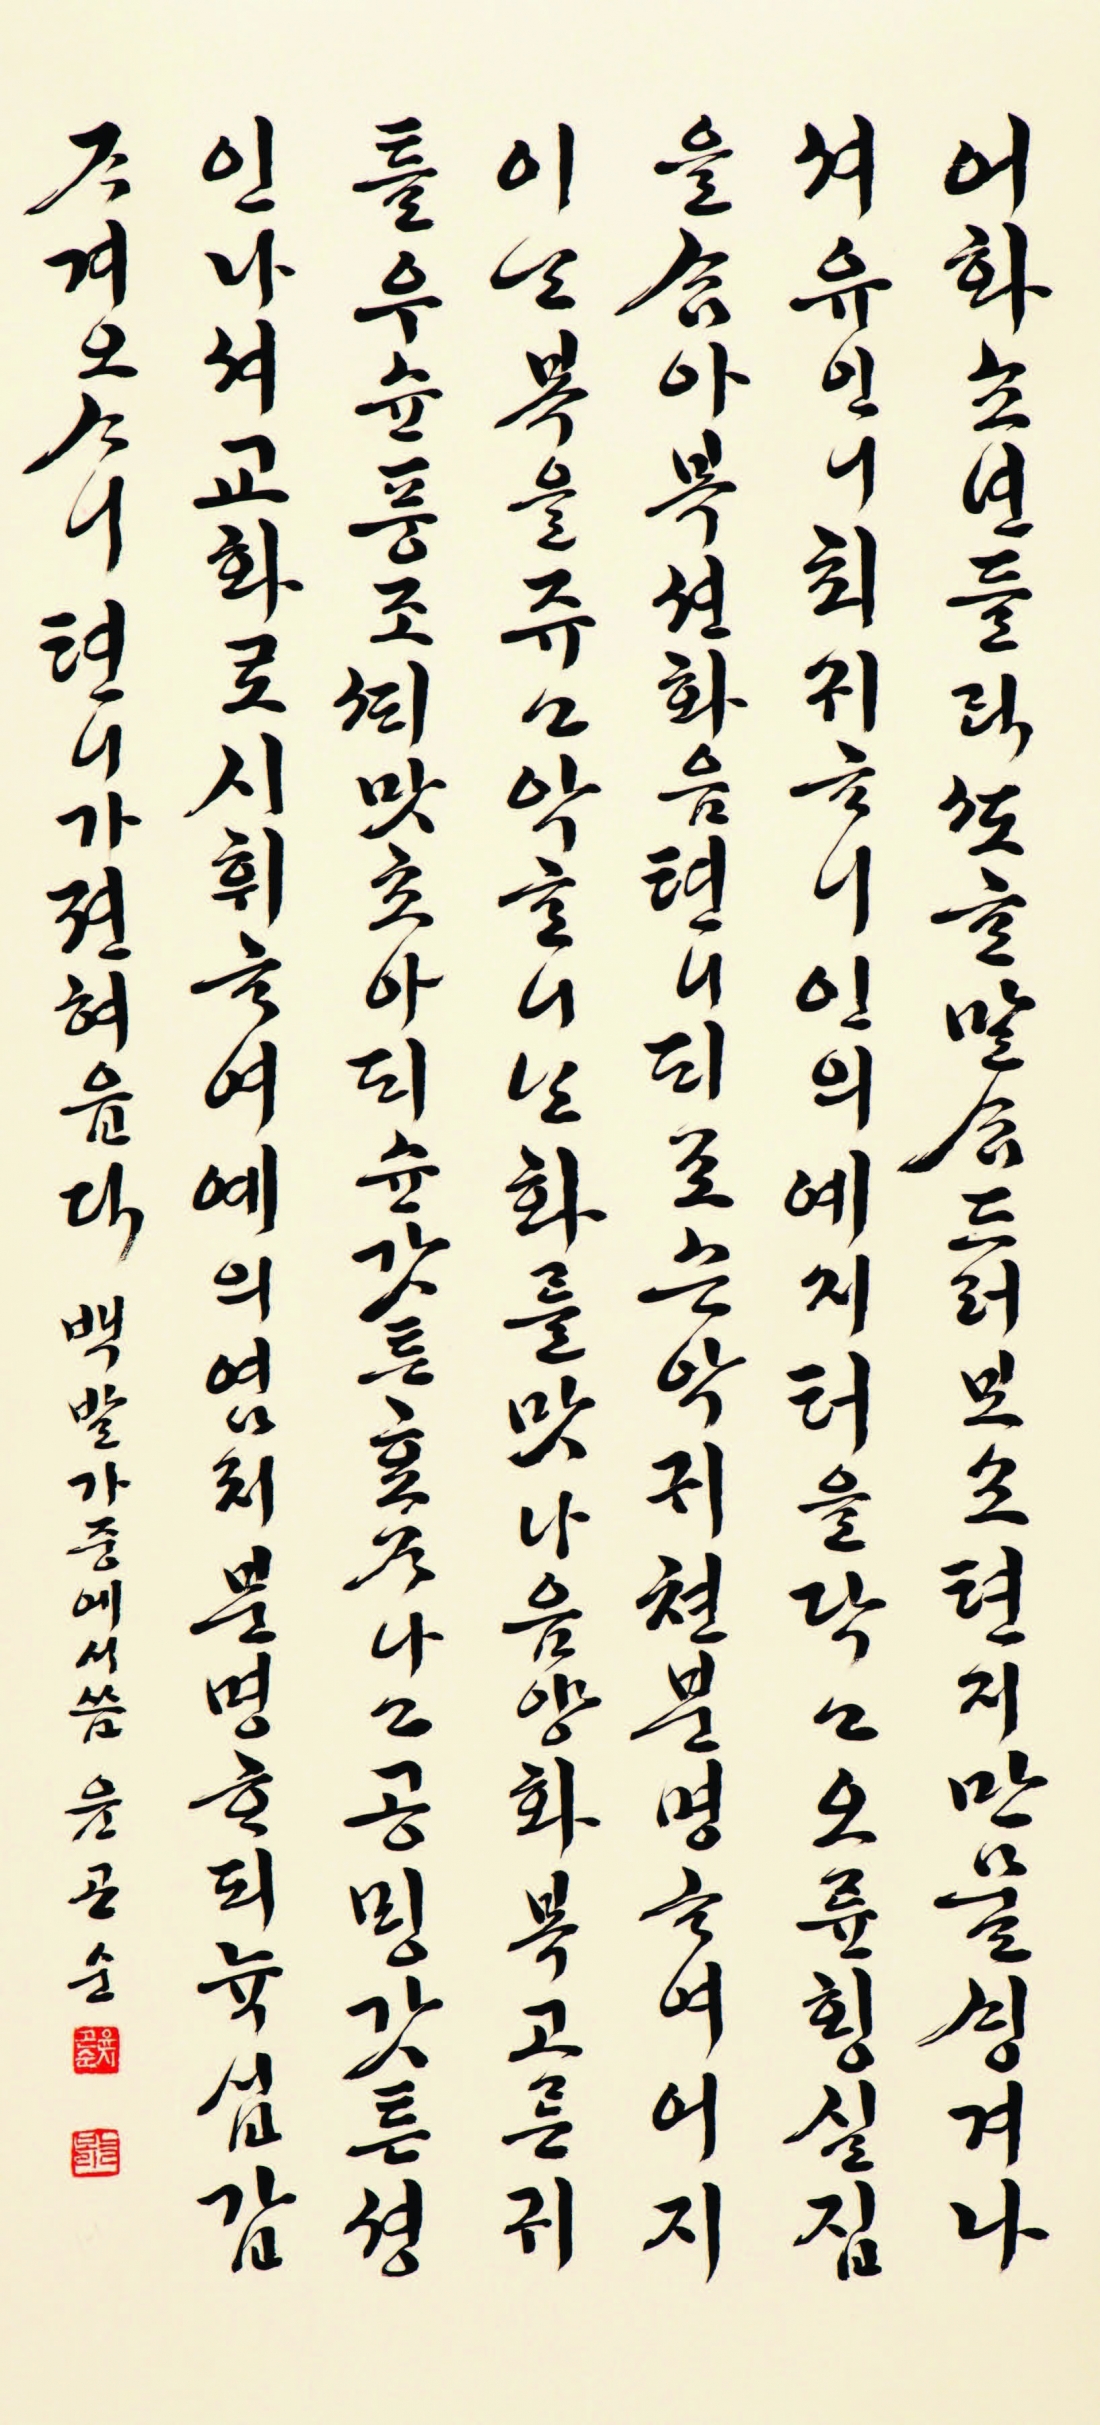 어화 소년들아 ᄯᅩ ᄒᆞᆫ 말ᄉᆞᆷ 드러보소 텬지만믈 ᄉᆡᆼ겨나
셔 유인니 최귀ᄒᆞ니 인의예지 터을 닥고 오륜ᄒᆡᆼ실 집
을 ᄉᆞᆷ아 복션화음 텬니되로 ᄉᆞᆫ악귀쳔 분명ᄒᆞ여 어지
이ᄂᆞᆫ 복을 쥬고 악ᄒᆞᆫ니ᄂᆞᆫ 화를 맛나 음양화복 고른 귀
틀 우슌풍조 ᄯᆡ 맛초아 되슌갓튼 효ᄌᆞ 나고 공ᄆᆡᆼ갓튼 셩
인 나셔 교화로시 휘ᄒᆞ여 예의염치 분명ᄒᆞ되 뉵십갑
ᄌᆞ 겨오ᄉᆞ니 텬니가 젼혀 읍다 백발가 중에서 씀 윤곤순